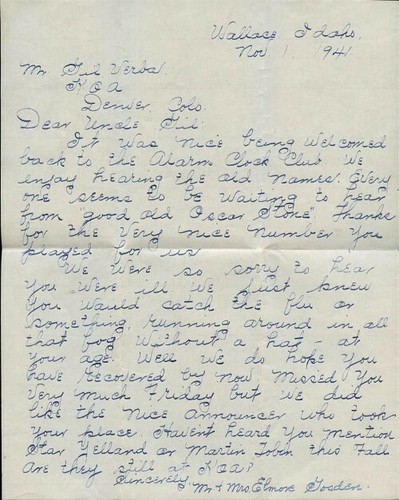 Wallace Idaho.
Nov. 1, 1941.
Mr Gil Verba.
KOA
Denver, Colo.
Dear Uncle Gil:
It was nice being welcomed
back to the Alarm Clock Club We
enjoy hearing the old names. Every
one seems to be waiting to hear
from "good old Oscar Stone" Thanks
for the very nice number you
played for us
We were so sorry to hear
you were ill we just knew
you would catch the flu or
something, running around in all
that fog without a hat - at
your age. Well we do hope you
have recovered by now Missed you
very much Friday but we did
like the nice announcer who took
your place. Havent heard you mention
Star Yelland or Martin Tobin this Fall
Are they still at KOA?
Sincerely,
Mr & Mrs. Elmore Gosden.